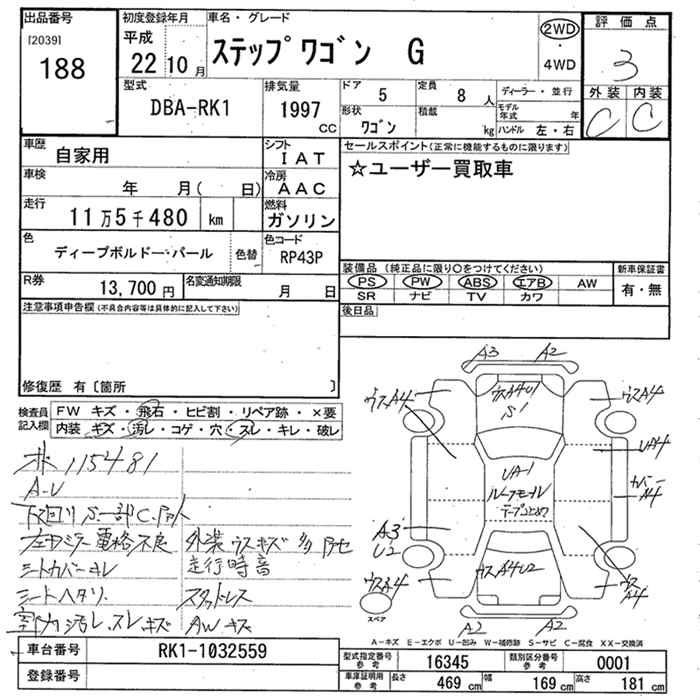 出品番号 初度登録年月 車名・グレード 評価点
[2039] 188 平成 22 10 月 ステップワゴン G 2WD ・ 4WD 3
型式 DBA-RK1 排気量 1997 CC ドア 5 定員 8 人 ディーラー・並行 外装 C 内装 C
形状 ワゴン 積載 kg モデル年式 年 ハンドル 左・右
車歴 自家用 シフト IAT セールスポイント(正常に機能するものに限ります)
車検 年 月( 日) 冷房 AAC ☆ユーザー買取車
走行 11万5千480 km 燃料 ガソリン
色 ディープボルドー・パール 色替 色コード RP43P
R券 13,700 円 名変通知期限 月 日
装備品(純正品に限り○をつけてください) 新車保証書
PS PW ABS エアB AW 有・無
SR ナビ TV カワ
注意事項申告欄(不具合内容等は具体的に記入して下さい) 後日品
修復歴 有〔箇所 〕
検査員記入欄 FW キズ・飛石・ヒビ割・リペア跡・×要
内装・キズ・汚レ・コゲ・穴・スレ・キレ・破レ
115481
A-U
下回りS一部C
左ドアミラー電格不良 外装ウスキズ多
シートカバーキレ 走行時音
シートヘタリ スタッドレス
室内汚レ.スレキズ AWキズ
A3 A2
ウスA4 ウスA4U1 S1 ウスA4
UA4
UA-1 ルーフモール カバーA4
A3 U2
ウスA4 ウスA4U2 ウスA4
スペア A2 A2
A-キズ E-エクボ U-凹み W-補修跡 S-サビ C-腐食 XX-交換済
車台番号 RK1-1032559 型式指定番号 参考 16345 類別区分番号 参考 0001
登録番号 車庫証明用 参考 長さ 469 cm 幅 169 cm 高さ 181 cm